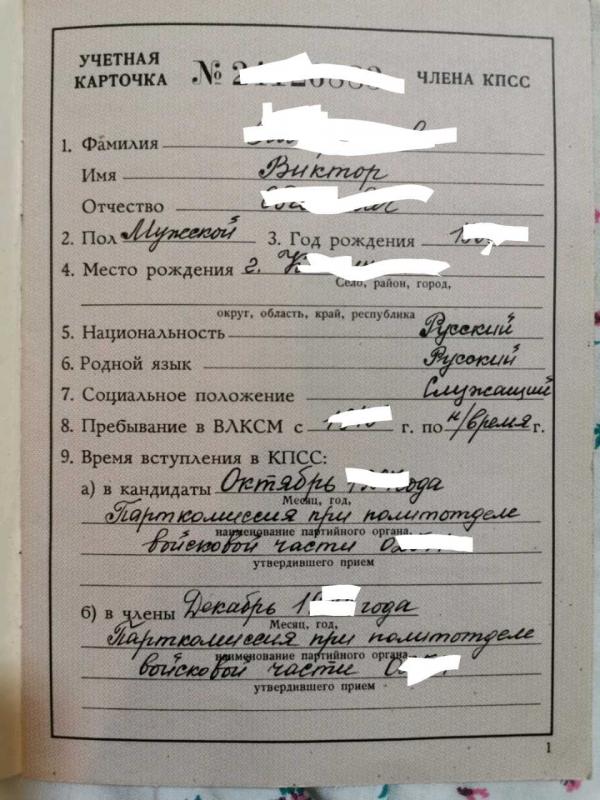 УЧЕТНАЯ
КАРТОЧКА № ЧЛЕНА КПСС
1. Фамилия
Имя Виктор
Отчество
2. Пол Мужской 3. Год рождения
4. Место рождения г.
Село, район, город,
округ, область, край, республика
5. Национальность Русский
6. Родной язык Русский
7. Социальное положение Служащий
8. Пребывание в ВЛКСМ с г. по н/время г.
9. Время вступления в КПСС:
а) в кандидаты Октябрь года
Месяц, год,
Парткомиссия при политотделе
наименование партийного органа,
войсковой части
утвердившего прием
б) в члены Декабрь года
Месяц, год,
Парткомиссия при политотделе
наименование партийного органа,
войсковой части
утвердившего прием
1